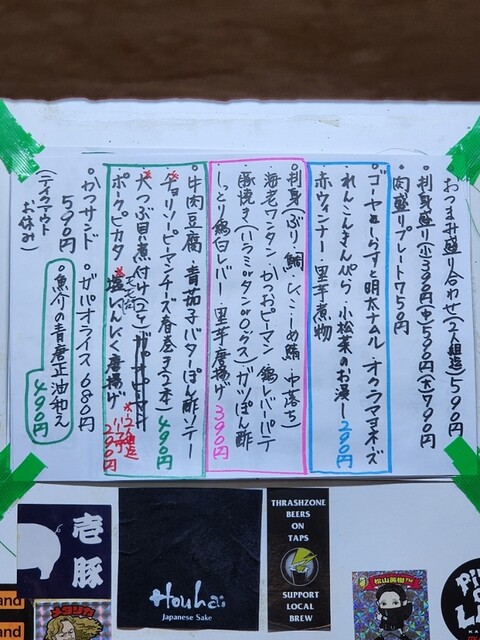 おつまみ盛り合わせ(2人組迄)590円
刺身盛り(小)390円(中)590円(大)790円
肉盛りプレート750円
ゴーヤとしらすと明太ナムル・オクラマヨネーズ
・れんこんきんぴら・小松菜のお浸し
赤ウィンナー・里芋煮物 290円
刺身(ぶり・鯛・しこ・しめ鯖・中落ち)
海老ワンタン・かつおピーマン・鶏レバーパテ
豚焼き(ハラミorタンorミックス)ガツぽん酢
しっとり鶏白レバー・里芋唐揚げ 390円
・牛肉豆腐・青茄子バターぽん酢ソテー
・チョリソーピーマンチーズ春巻き(2本) 490円
・大つぶ貝煮付け(2ヶ)
・ポークピカタ・塩にんにく唐揚げ
290円
・かつサンド 590円
・ガパオライス680円
(テイクアウトお休み)
・魚介の青唐正油和え 490円
壱豚
Houhai
Japanese Sake
THRASHZONE
BEERS
ON
TAPS
SUPPORT
LOCAL
BREW
メタリカ
松山英樹
and
and